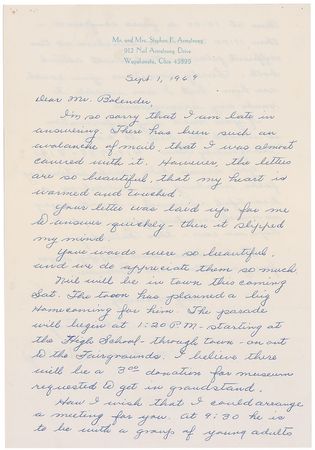 Mr. and Mrs. Stephen K. Armstrong
912 Neil Armstrong Drive
Wapakoneta, Ohio 45895
Sept 1, 1969
Dear Mr. Bolender,
I'm so sorry that I am late in
answering. There has been such an
avalanche of mail, that I was almost
covered with it. However, the letters
are so beautiful, that my heart is
warmed and touched.
Your letter was laid up for me
to answer quickly - then it slipped
my mind.
Your words were so beautiful,
and we do appreciate them so much.
Neil will be in town this coming
Sat. The town has planned a big
Homecoming for him. The parade
will begin at 1:30 P.M. - starting at
the High School - through town - on out
to the Fairgrounds. I believe there
will be a 3.00 donation for museum
requested to get in grandstand.
How I wish that I could arrange
a meeting for you. At 9:30 he is
to be with a group of young adults